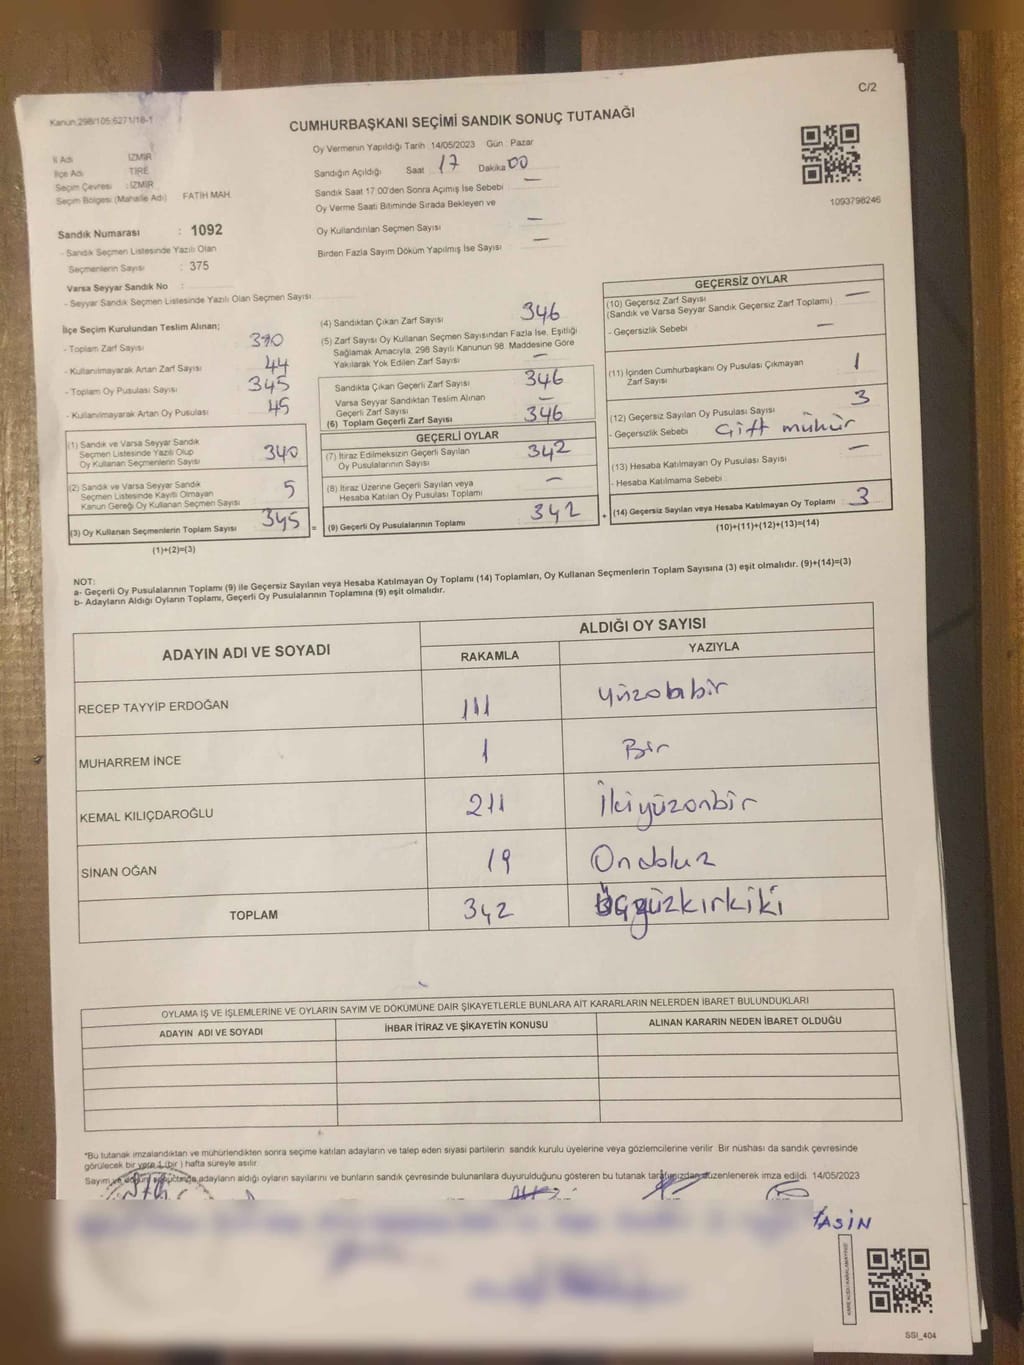 C/2
Kanun:298/105:6271/18-1
CUMHURBAŞKANI SEÇİMİ SANDIK SONUÇ TUTANAĞI
İl Adı İZMİR
İlçe Adı TİRE
Seçim Çevresi : İZMİR
Seçim Bölgesi (Mahalle Adı) FATİH MAH.
Sandık Numarası : 1092
- Sandık Seçmen Listesinde Yazılı Olan
Seçmenlerin Sayısı : 375
Varsa Seyyar Sandık No :
- Seyyar Sandık Seçmen Listesinde Yazılı Olan Seçmen Sayısı
Oy Vermenin Yapıldığı Tarih :14/05/2023 Gün : Pazar
Sandığın Açıldığı Saat 17 Dakika 00
Sandık Saat 17:00'den Sonra Açımış İse Sebebi —
Oy Verme Saati Bitiminde Sırada Bekleyen ve
Oy Kullandırılan Seçmen Sayısı —
Birden Fazla Sayım Döküm Yapılmış İse Sayısı —
1093798246
İlçe Seçim Kurulundan Teslim Alınan;
- Toplam Zarf Sayısı 390
- Kullanılmayarak Artan Zarf Sayısı 44
- Toplam Oy Pusulası Sayısı 345
- Kullanılmayarak Artan Oy Pusulası 45
(1) Sandık ve Varsa Seyyar Sandık
Seçmen Listesinde Yazılı Olup
Oy Kullanan Seçmenlerin Sayısı 340
(2) Sandık ve Varsa Seyyar Sandık
Seçmen Listesinde Kayıtlı Olmayan
Kanun Gereği Oy Kullanan Seçmen Sayısı 5
(3) Oy Kullanan Seçmenlerin Toplam Sayısı 345 =
(1)+(2)=(3)
(4) Sandıktan Çıkan Zarf Sayısı 346
(5) Zarf Sayısı Oy Kullanan Seçmen Sayısından Fazla İse, Eşitliği
Sağlamak Amacıyla, 298 Sayılı Kanunun 98. Maddesine Göre
Yakılarak Yok Edilen Zarf Sayısı —
Sandıkta Çıkan Geçerli Zarf Sayısı 346
Varsa Seyyar Sandıktan Teslim Alınan
Geçerli Zarf Sayısı —
(6) Toplam Geçerli Zarf Sayısı 346
GEÇERLİ OYLAR
(7) İtiraz Edilmeksizin Geçerli Sayılan
Oy Pusulalarının Sayısı 342
(8) İtiraz Üzerine Geçerli Sayılan veya
Hesaba Katılan Oy Pusulası Toplamı —
(9) Geçerli Oy Pusulalarının Toplamı 342 +
GEÇERSİZ OYLAR
(10) Geçersiz Zarf Sayısı —
(Sandık ve Varsa Seyyar Sandık Geçersiz Zarf Toplamı)
- Geçersizlik Sebebi —
(11) İçinden Cumhurbaşkanı Oy Pusulası Çıkmayan
Zarf Sayısı 1
(12) Geçersiz Sayılan Oy Pusulası Sayısı 3
- Geçersizlik Sebebi Çift mühür
(13) Hesaba Katılmayan Oy Pusulası Sayısı —
- Hesaba Katılmama Sebebi
(14) Geçersiz Sayılan veya Hesaba Katılmayan Oy Toplamı 3
(10)+(11)+(12)+(13)=(14)
NOT:
a- Geçerli Oy Pusulalarının Toplamı (9) ile Geçersiz Sayılan veya Hesaba Katılmayan Oy Toplamı (14) Toplamları, Oy Kullanan Seçmenlerin Toplam Sayısına (3) eşit olmalıdır. (9)+(14)=(3)
b- Adayların Aldığı Oyların Toplamı, Geçerli Oy Pusulalarının Toplamına (9) eşit olmalıdır.
ADAYIN ADI VE SOYADI ALDIĞI OY SAYISI
RAKAMLA YAZIYLA
RECEP TAYYİP ERDOĞAN 111
MUHARREM İNCE 1 Bir
KEMAL KILIÇDAROĞLU 211 İkiyüzonbir
SİNAN OĞAN 19
TOPLAM 342 Üçyüzkırkiki
OYLAMA İŞ VE İŞLEMLERİNE VE OYLARIN SAYIM VE DÖKÜMÜNE DAİR ŞİKAYETLERLE BUNLARA AİT KARARLARIN NELERDEN İBARET BULUNDUKLARI
ADAYIN ADI VE SOYADI İHBAR İTİRAZ VE ŞİKAYETİN KONUSU ALINAN KARARIN NEDEN İBARET OLDUĞU
*Bu tutanak imzalandıktan ve mühürlendikten sonra seçime katılan adayların ve talep eden siyasi partilerin sandık kurulu üyelerine veya gözlemcilerine verilir. Bir nüshası da sandık çevresinde
görülecek bir yere 1 (bir ) hafta süreyle asılır.
Sayım ve döküm adayların aldığı oyların sayılarını ve bunların sandık çevresinde bulunanlara duyurulduğunu gösteren bu tutanak tarafımızdan düzenlenerek imza edildi. 14/05/2023
SSI_404